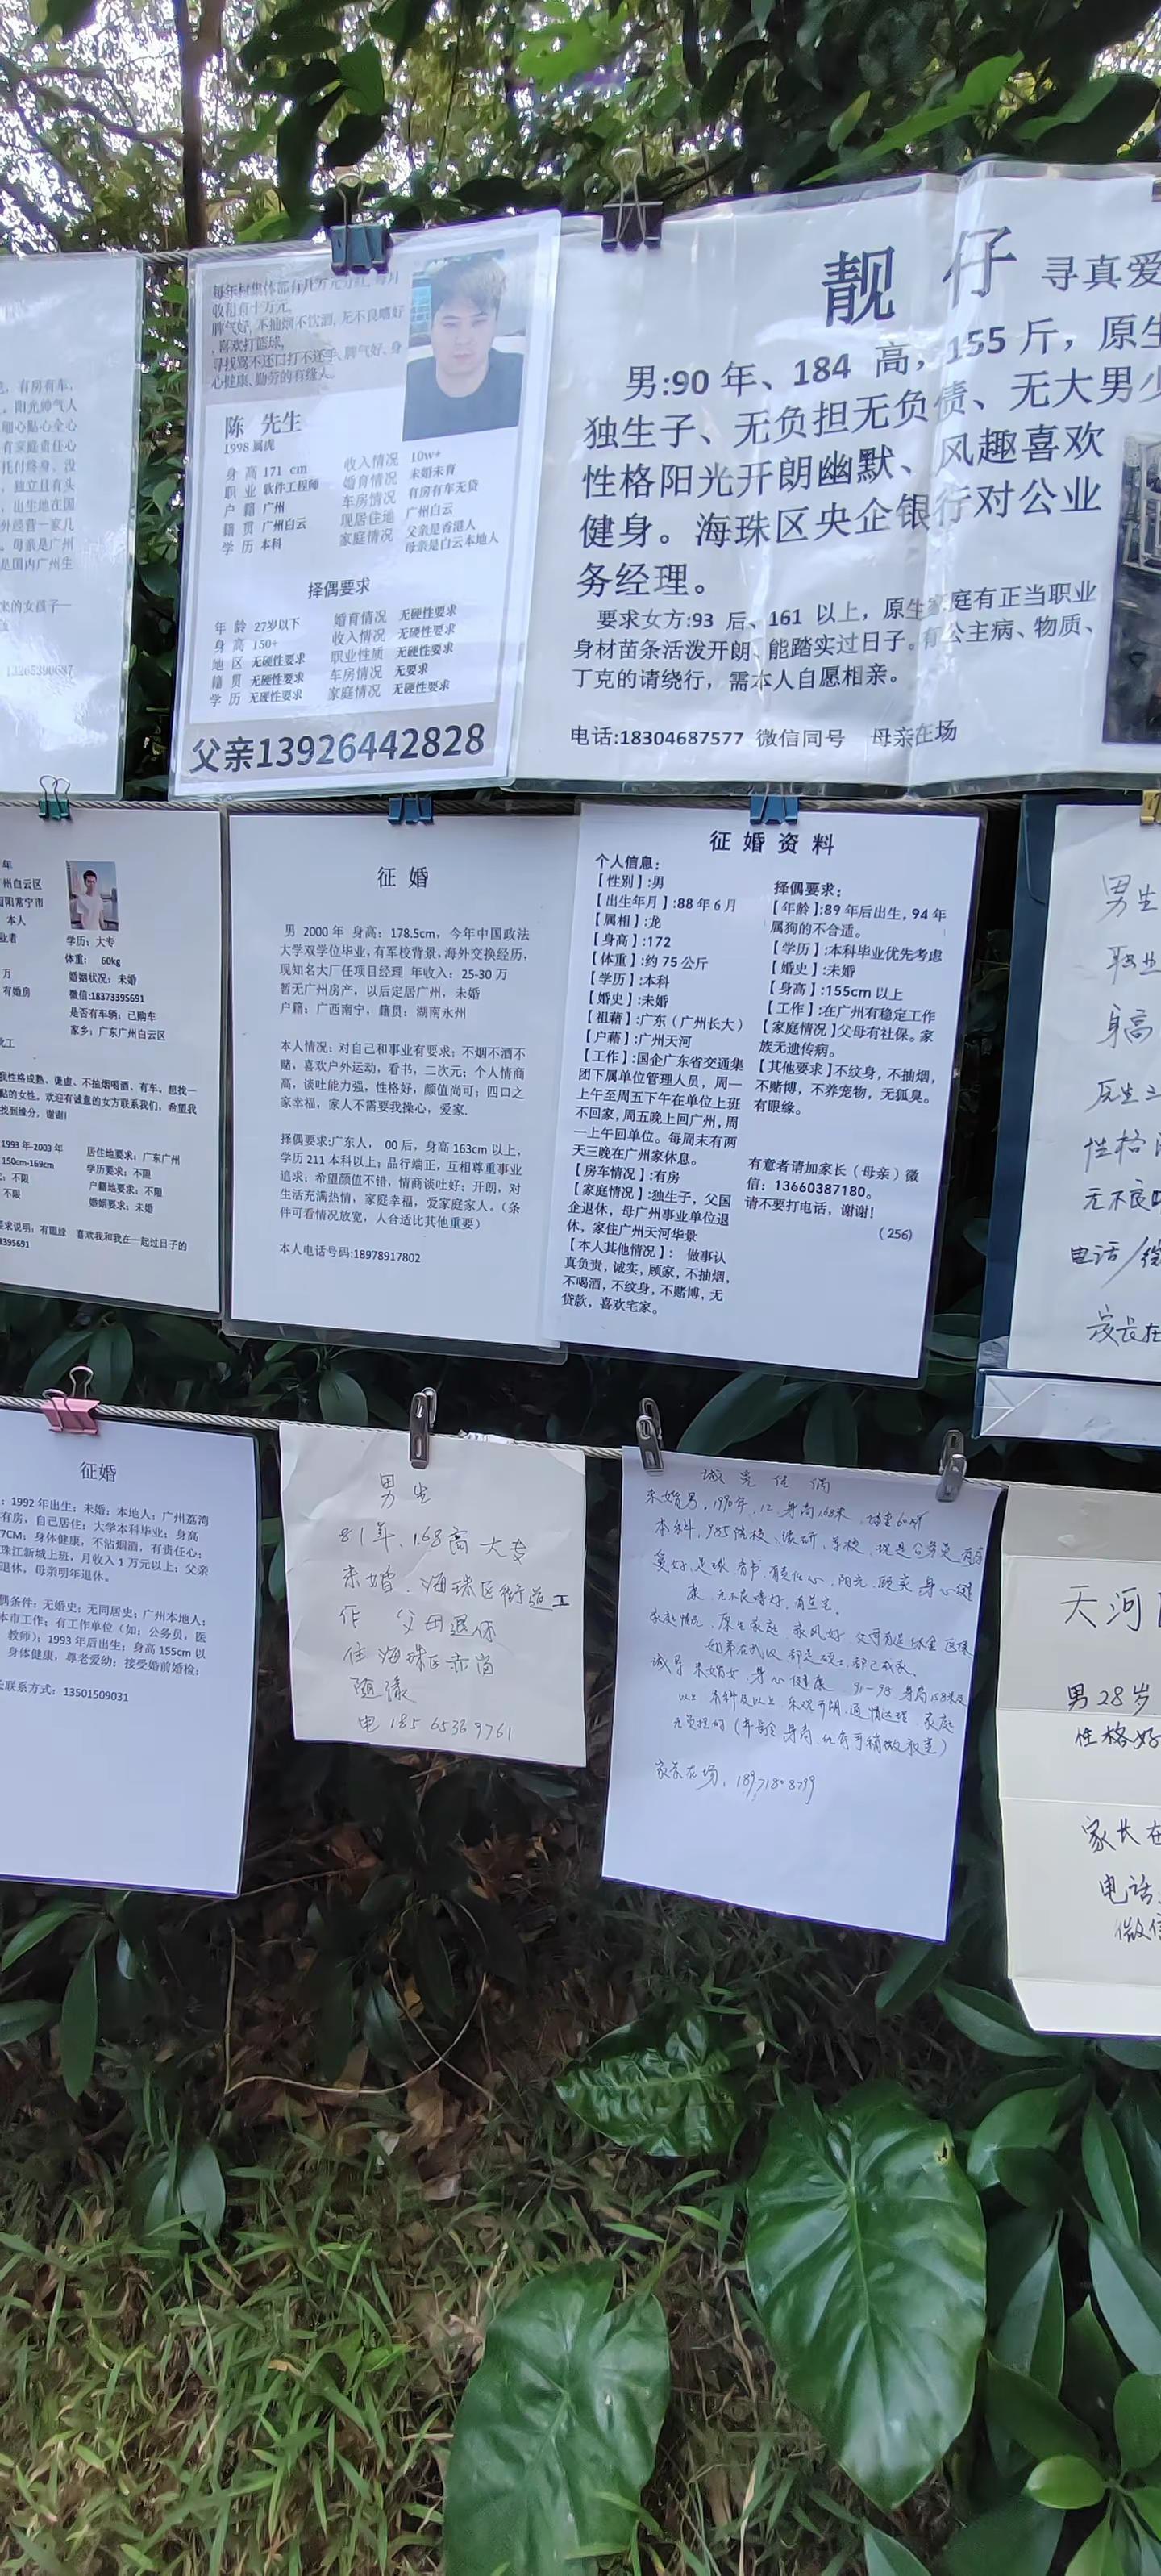 有房有车,
阳光帅气人
细心贴心全心
有家庭责任心
托付终身,没
独立且有头
出生地在国
外经营一家几
母亲是广州
是国内广州生
来的女孩子一
13265390687
每年村集体都有几万元分红, 每月
收租有十万元,
脾气好, 不抽烟不饮酒, 无不良嗜好
, 喜欢打篮球,
寻找骂不还口打不还手、脾气好、身
心健康、勤劳的有缘人。
陈 先生
1998 属虎
身 高 171 cm 收入情况 10w+
职 业 软件工程师 婚育情况 未婚未育
户 籍 广州 车房情况 有房有车无贷
籍 贯 广州白云 现居住地 广州白云
学 历 本科 家庭情况 父亲是香港人
母亲是白云本地人
择偶要求
年 龄 27岁以下 婚育情况 无硬性要求
身 高 150+ 收入情况 无硬性要求
地 区 无硬性要求 职业性质 无硬性要求
籍 贯 无硬性要求 车房情况 无要求
学 历 无硬性要求 家庭情况 无硬性要求
父亲13926442828
靓 仔 寻真爱
男:90 年、184 高，155 斤，原生
独生子、无负担无负债、无大男少
性格阳光开朗幽默、风趣喜欢
健身。海珠区央企银行对公业
务经理。
要求女方:93 后、161 以上，原生家庭有正当职业
身材苗条活泼开朗、能踏实过日子。有公主病、物质、
丁克的请绕行，需本人自愿相亲。
电话:18304687577 微信同号 母亲在场
年
州白云区
阳常宁市
本人
业者
学历：大专
体重： 60kg
万
婚姻状况：未婚
有婚房
微信:18373395691
是否有车辆：已购车
家乡：广东广州白云区
化工
我性格成熟、谦虚、不抽烟喝酒、有车。想找一
贴的女性。欢迎有诚意的女方联系我们，希望我
找到缘分，谢谢!
1993 年-2003 年 居住地要求：广东广州
150cm-169cm 学历要求：不限
：不限 户籍地要求：不限
不限 婚姻要求：未婚
要求说明：有眼缘 喜欢我和我在一起过日子的
3395691
征 婚
男 2000 年 身高：178.5cm，今年中国政法
大学双学位毕业, 有军校背景, 海外交换经历,
现知名大厂任项目经理 年收入：25-30 万
暂无广州房产，以后定居广州，未婚
户籍：广西南宁，籍贯：湖南永州
本人情况：对自己和事业有要求；不烟不酒不
赌，喜欢户外运动，看书，二次元；个人情商
高，谈吐能力强，性格好，颜值尚可；四口之
家幸福，家人不需要我操心，爱家.
择偶要求:广东人， 00后，身高 163cm 以上，
学历 211 本科以上；品行端正，互相尊重事业
追求；希望颜值不错，情商谈吐好；开朗，对
生活充满热情，家庭幸福，爱家庭家人。（条
件可看情况放宽，人合适比其他重要）
本人电话号码:18978917802
征 婚 资 料
个人信息：
【性别】:男
【出生年月】:88 年 6 月
【属相】:龙
【身高】:172
【体重】:约 75 公斤
【学历】:本科
【婚史】:未婚
【祖籍】:广东（广州长大）
【户籍】:广州天河
【工作】:国企广东省交通集
团下属单位管理人员，周一
上午至周五下午在单位上班
不回家，周五晚上回广州，周
一上午回单位。每周末有两
天三晚在广州家休息。
【房车情况】:有房
【家庭情况】:独生子，父国
企退休，母广州事业单位退
休，家住广州天河华景
【本人其他情况】： 做事认
真负责，诚实，顾家，不抽烟，
不喝酒，不纹身，不赌博，无
贷款，喜欢宅家。
择偶要求：
【年龄】:89 年后出生，94 年
属狗的不合适。
【学历】:本科毕业优先考虑
【婚史】:未婚
【身高】:155cm 以上
【工作】:在广州有稳定工作
【家庭情况】父母有社保。家
族无遗传病。
【其他要求】不纹身，不抽烟，
不赌博，不养宠物，无狐臭。
有眼缘。
有意者请加家长（母亲）微
信：13660387180。
请不要打电话，谢谢！
（256）
男生
职业
身高
性格
无不良
电话/
家长在
征婚
：1992 年出生；未婚；本地人；广州荔湾
有房，自己居住；大学本科毕业；身高
7CM；身体健康，不沾烟酒，有责任心；
珠江新城上班，月收入 1 万元以上；父亲
退休，母亲明年退休。
偶条件：无婚史；无同居史；广州本地人；
本市工作；有工作单位（如：公务员，医
教师）；1993 年后出生；身高 155cm 以
身体健康，尊老爱幼；接受婚前婚检；
长联系方式：13501509031
男生
81年、1.68高 大专
未婚. 海珠区街道工
作 父母退休
住 海珠区赤岗
随缘
电 18565369761
诚 觅 佳 偶
未婚男，1990年.12 身高1.68米
本科, 985院校、读研
爱好,足球、看书、有责任心、阳光、踏实 身心健
康、无不良嗜好
家庭情况、原生家庭 家风好
都是硕士,都已成家.
诚寻 未婚女、身心健康 91-98 身高158米及
以上 本科及以上 乐观开朗、通情达理、家庭
无负担的（年龄、身高
家长在场, 18971808799
天河
男28岁
性格好
家长在
电话
微信